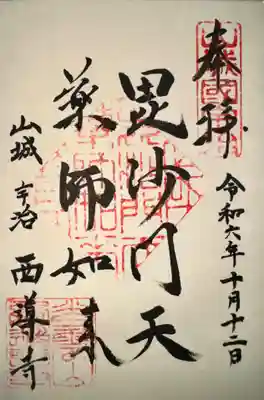 奉拝
令和六年十月十二日
毘沙門天
薬師如来
山城宇治 西導寺